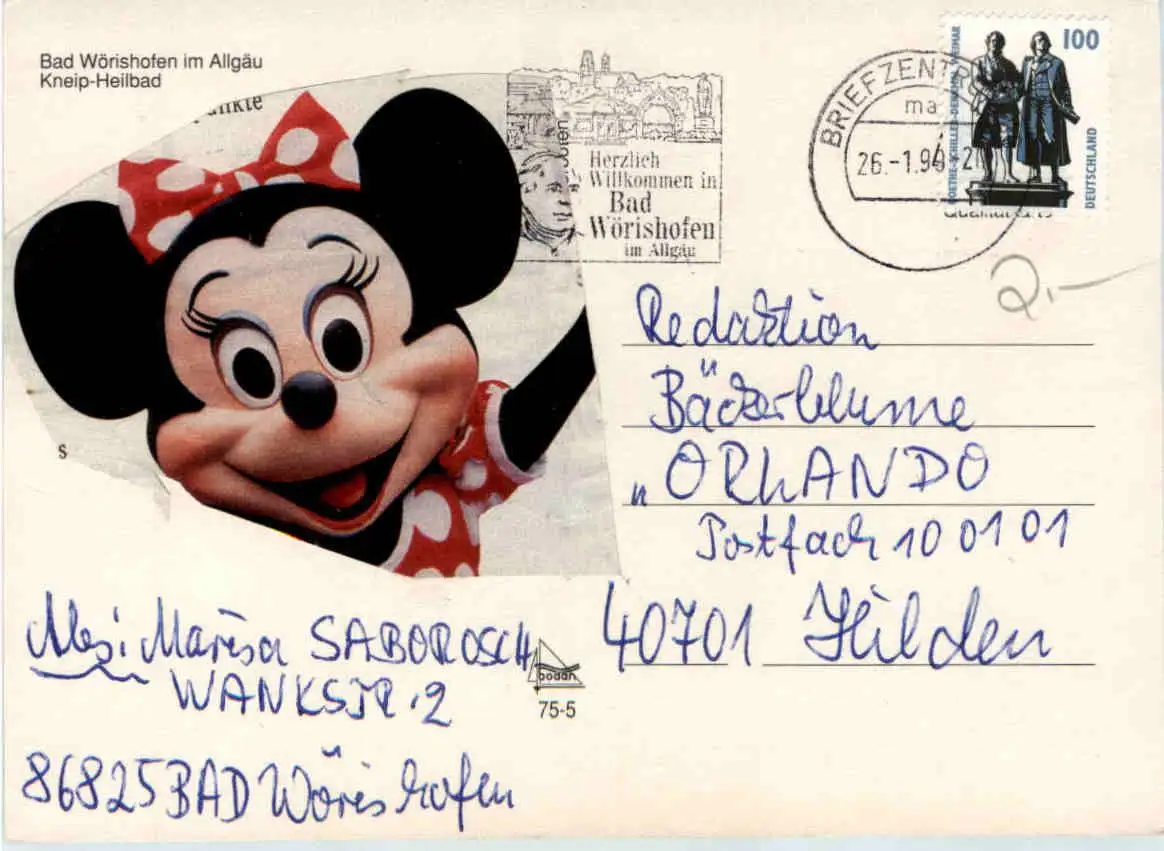 Bad Wörishofen im Allgäu
Kneip-Heilbad
unkte
s
Herzlich
Willkommen in
Bad
Wörishofen
im Allgäu
BRIEFZENT
ma
26.-1.96-21
100
GOETHE-SCHILLER-DENKMAL WEIMAR
DEUTSCHLAND
2,-
Redaktion
Bäckerblume
„ORLANDO
Postfach 10 01 01
40701 Hilden
Abs: Marisa SABOROSCH
WANKSTR. 2
86825 BAD Wörishofen
bodan
75-5